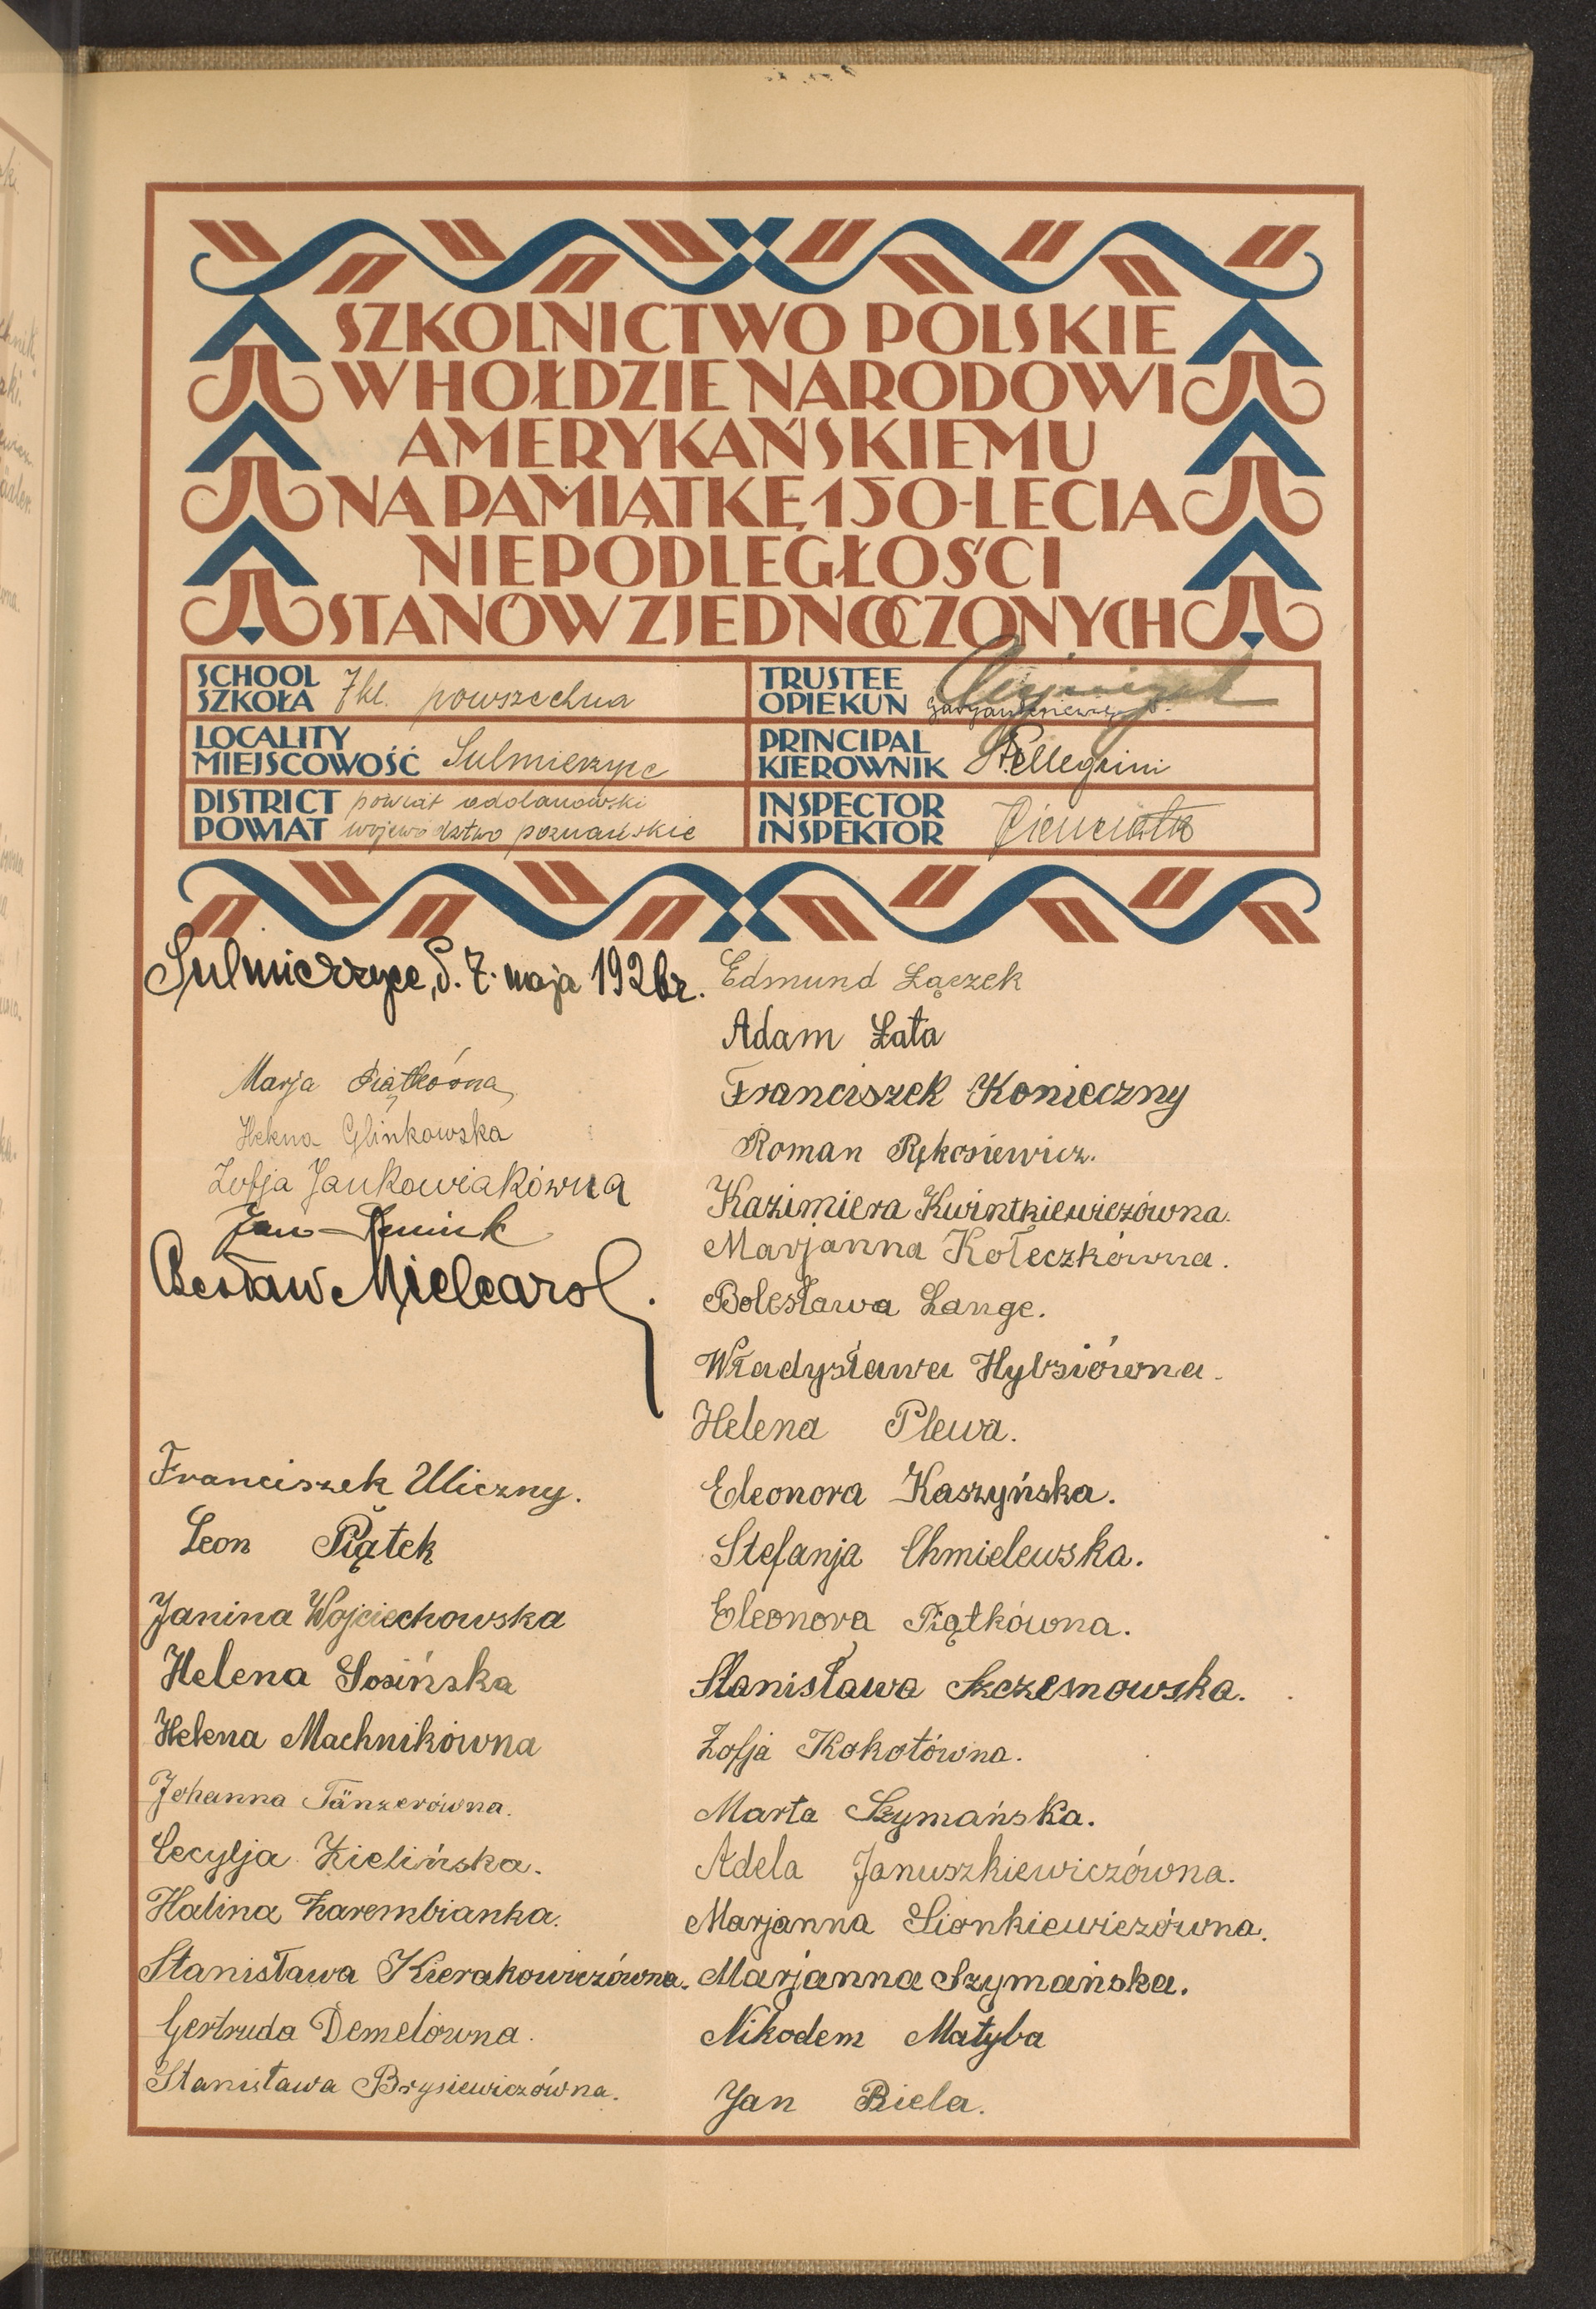 SZKOLNICTWO POLSKIE
W HOŁDZIE NARODOWI
AMERYKAŃSKIEMU
NA PAMIĄTKĘ 150-LECIA
NIEPODLEGŁOŚCI
STANÓW ZJEDNOCZONYCH
SCHOOL
SZKOŁA 7 kl. powszechna
TRUSTEE
OPIEKUN
LOCALITY
MIEJSCOWOŚĆ Sulmierzyce
PRINCIPAL
KIEROWNIK Pellegrini
DISTRICT powiat odolanowski
POWIAT województwo poznańskie
INSPECTOR
INSPEKTOR
Sulmierzyce, d. 7. maja 1926 r.
Marja Piątkówna
Helena Glinkowska
Zofja Jankowiakówna
Jan
Czesław Mielcarek.
Franciszek Uliczny.
Leon Piątek
Janina Wojciechowska
Helena Sosińska
Helena Machnikówna
Johanna Tänzerówna.
Cecylja Zielińska.
Halina Zarembianka.
Stanisława Kierakowiczówna.
Gertruda Demelówna.
Stanisława Brysiewiczówna.
Edmund Łączek
Adam Łata
Franciszek Konieczny
Roman Rękosiewicz.
Kazimiera Kwintkiewiczówna.
Marjanna Kołeczkówna.
Bolesława Lange.
Władysława Hybsiówna.
Helena Plewa.
Eleonora Kaszyńska.
Stefanja Chmielewska.
Eleonora Piątkówna.
Stanisława Szczesnowska.
Zofja Kokotówna.
Marta Szymańska.
Adela Januszkiewiczówna.
Marjanna Sionkiewiczówna.
Marjanna Szymańska.
Nikodem Matyba
Jan Biela.